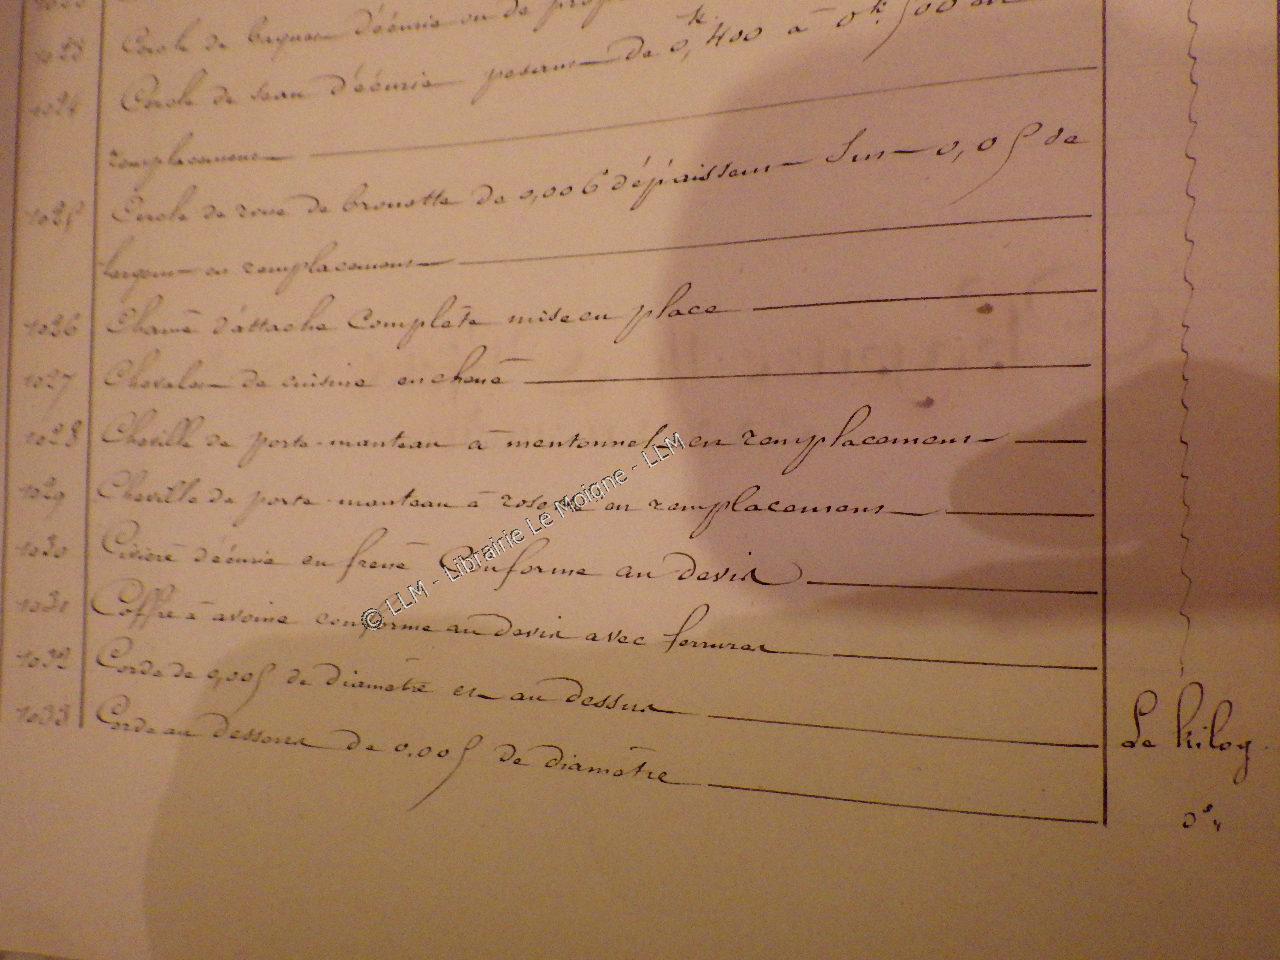 1023 Cercle de baquet d'écurie ou de
1024 Cercle de seau d'écurie pesant de 0k,400 à 0k,500 en
remplacement
1025 Cercle de roue de brouette de 0,006 d'épaisseur sur 0,05 de
largeur en remplacement
1026 Chaine d'attache complète mise en place
1027 Chevalet de cuisine en chêne
1028 Cheville de porte-manteau à mentonnet en remplacement
1029 Cheville de porte-manteau à rosette en remplacement
1030 Civière d'écurie en frêne Conforme au devis
1031 Coffre à avoine conforme au devis avec ferrures
1032 Corde de 0,005 de diamètre et au dessus
Le kilog
1033 Corde au dessous de 0.005 de diamètre
© LLM - Librairie Le Moigne - LLM